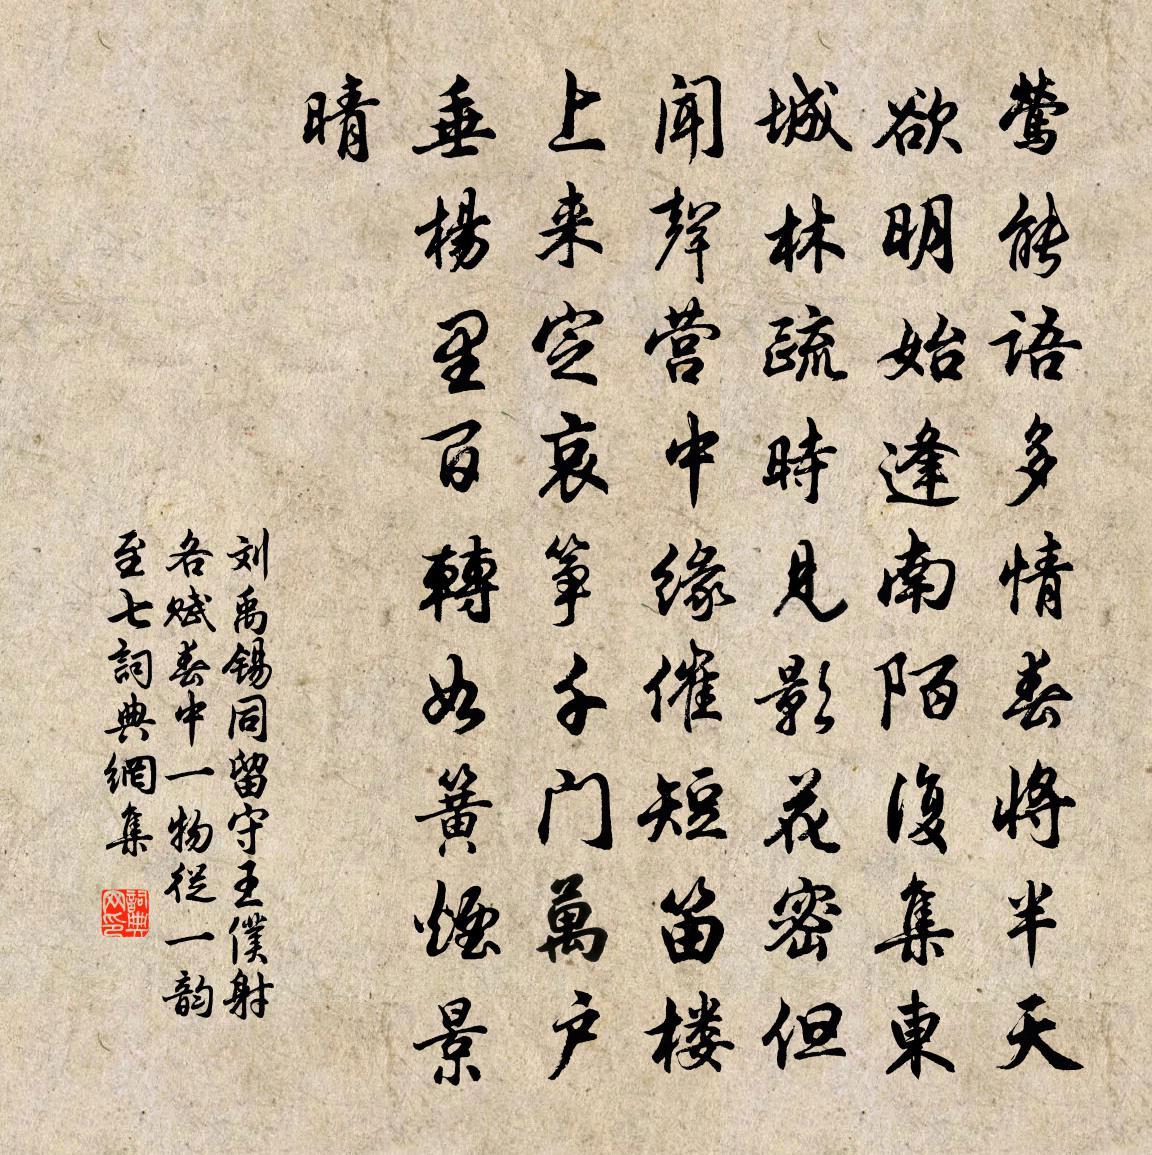 莺能语多情春将半天
欲明始逢南陌復集東
城林疏時見影花密但
闻聲营中緣催短笛楼
上来定哀筝千门萬户
垂楊里百轉如簧煙景
晴
刘禹锡同留守王僕射
各赋春中一物從一韵
至七詞典網集
詞典网印